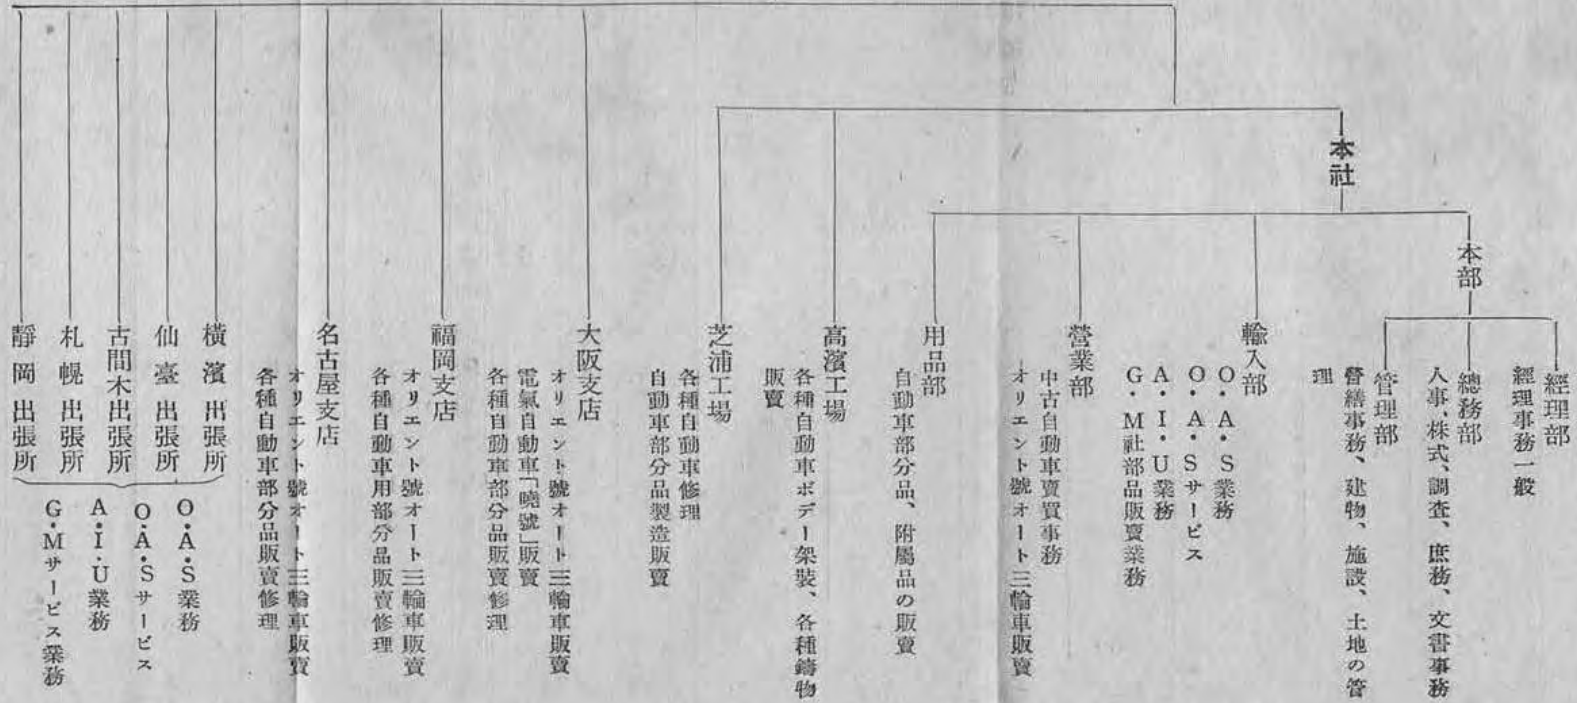 本社
本部
經理部
經理事務一般
總務部
人事、株式、調查、庶務、文書事務
管理部
營繕事務、建物、施設、土地の管
理
輸入部
O・A・S業務
O・A・Sサービス
A・I・U業務
G・M社部品販賣業務
營業部
中古自動車賣買事務
オリエント號オート三輪車販賣
用品部
自動車部分品、附屬品の販賣
高濱工場
各種自動車ボデー架裝、各種鑄物
販賣
芝浦工場
各種自動車修理
自動車部分品製造販賣
大阪支店
オリエント號オート三輪車販賣
電氣自動車「曉號」販賣
各種自動車部分品販賣修理
福岡支店
オリエント號オート三輪車販賣
各種自動車用部分品販賣修理
名古屋支店
オリエント號オート三輪車販賣
各種自動車部分品販賣修理
橫濱出張所
仙臺出張所
古間木出張所
札幌出張所
靜岡出張所
O・A・S業務
O・A・Sサービス
A・I・U業務
G・Mサービス業務